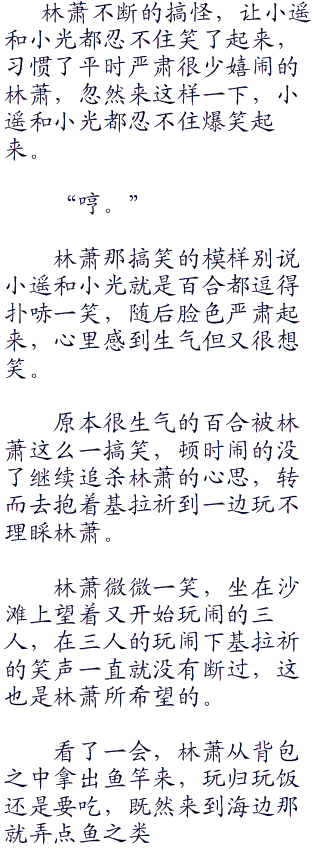 林萧不断的搞怪，让小遥
和小光都忍不住笑了起来，
习惯了平时严肃很少嬉闹的
林萧，忽然来这样一下，小
遥和小光都忍不住爆笑起
来。
“哼。”
林萧那搞笑的模样别说
小遥和小光就是百合都逗得
扑哧一笑，随后脸色严肃起
来，心里感到生气但又很想
笑。
原本很生气的百合被林
萧这么一搞笑，顿时闹的没
了继续追杀林萧的心思，转
而去抱着基拉祈到一边玩不
理睬林萧。
林萧微微一笑，坐在沙
滩上望着又开始玩闹的三
人，在三人的玩闹下基拉祈
的笑声一直就没有断过，这
也是林萧所希望的。
看了一会，林萧从背包
之中拿出鱼竿来，玩归玩饭
还是要吃，既然来到海边那
就弄点鱼之类